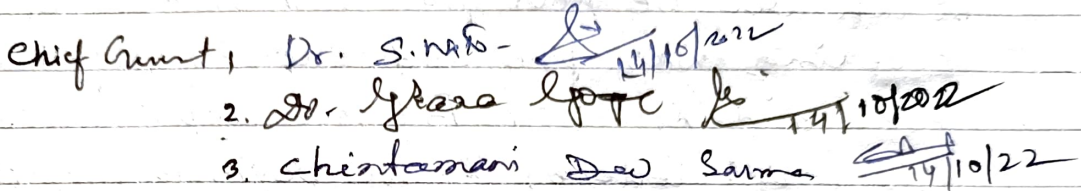 Chief Guest 1, Dr. S. Nath - 14/10/2022
2. Dr. Gogoi 14/10/2022
3. Chintamani Dev Sarma 14/10/22